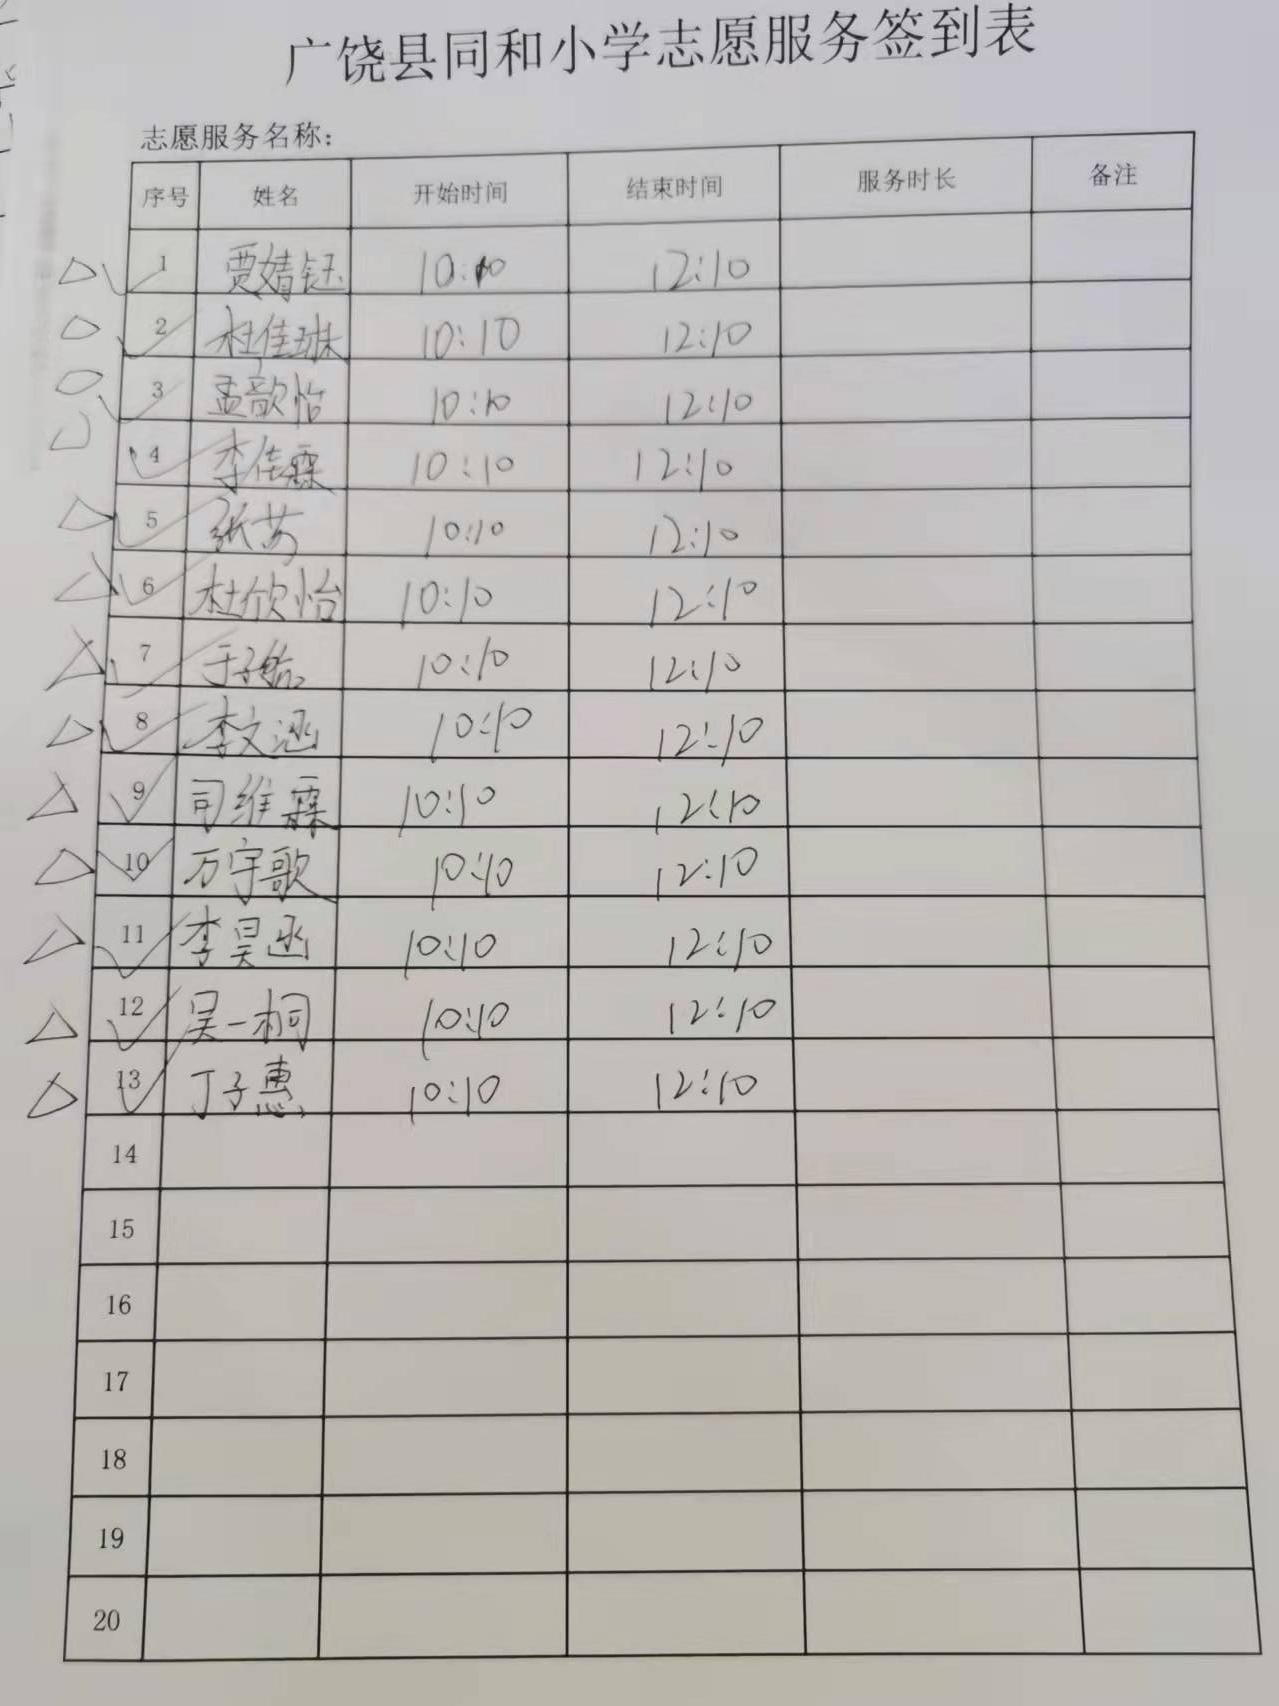 广饶县同和小学志愿服务签到表
志愿服务名称：
序号 姓名 开始时间 结束时间 服务时长 备注
1 贾婧钰 10:10 12:10
2 杜佳琳 10:10 12:10
3 孟歆怡 10:10 12:10
4 李佳霖 10:10 12:10
5 张芮 10:10 12:10
6 杜欣怡 10:10 12:10
7 于子 10:10 12:10
8 李文涵 10:10 12:10
9 司维霖 10:10 12:10
10 万宇歌 10:10 12:10
11 李昊函 10:10 12:10
12 吴一桐 10:10 12:10
13 丁子惠 10:10 12:10
14
15
16
17
18
19
20